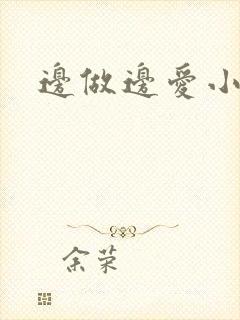 邊做邊愛小
余荣